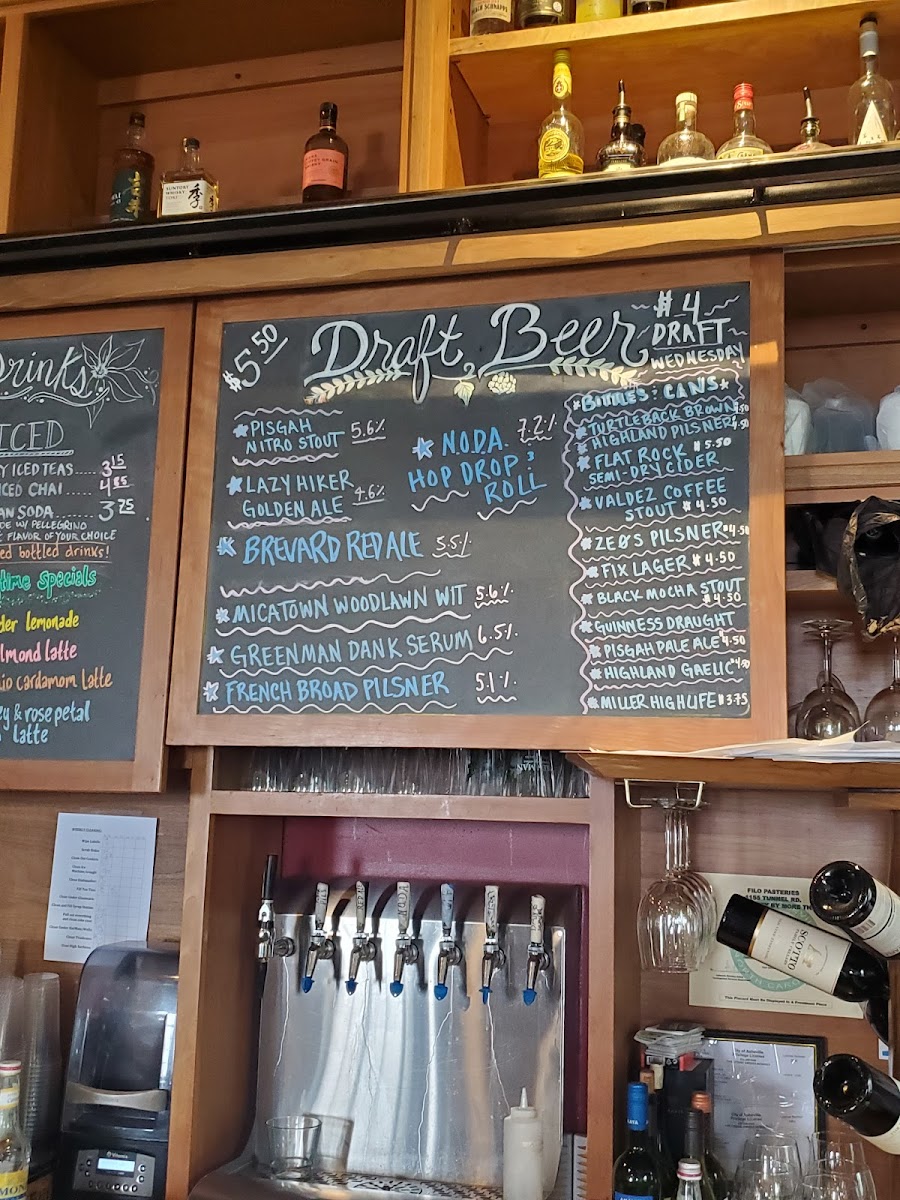 SUNTORY
WHISKY
季
Drinks
ICED
ICED TEAS..... 3 15
ICED CHAI..... 4 85
SODA..... 3 75
W/ PELLEGRINO
FLAVOR OF YOUR CHOICE
bottled drinks!
time Specials
lemonade
almond latte
cardamom latte
& rose petal
latte
$5 50
Draft Beer
$4
DRAFT
WEDNESDAY
PISGAH
NITRO STOUT 5.6%
LAZY HIKER
GOLDEN ALE 4.6%
BREVARD RED ALE 5.5%
N.O.DA. 7.2%
HOP DROP &
ROLL
MICATOWN WOODLAWN WIT 5.6%
GREENMAN DANK SERUM 6.5%
FRENCH BROAD PILSNER 5.1%
*BOTTLES & CANS*
TURTLEBACK BROWN 4.50
HIGHLAND PILSNER 4.50
FLAT ROCK $5.50
SEMI-DRY CIDER
VALDEZ COFFEE
STOUT $4.50
ZEOS PILSNER $4.50
FIX LAGER $4.50
BLACK MOCHA STOUT
$4.50
GUINNESS DRAUGHT
PISGAH PALE ALE $4.50
HIGHLAND GAELIC $4.50
MILLER HIGH LIFE $3.75
FILO PASTERIES
1155 TUNNEL RD.
BY MORE TH
SCOTTO
This Placard Must Be Displayed In A Prominent Place
City of Asheville
Vitamix